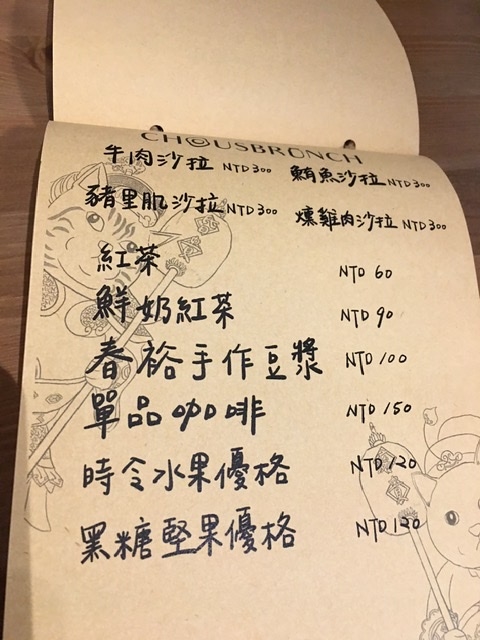 CHOUSBRUNCH
牛肉沙拉 NTD300 鮪魚沙拉 NTD300
豬里肌沙拉 NTD300 燻雞肉沙拉 NTD300
紅茶 NTD 60
鮮奶紅茶 NTD 90
春裕手作豆漿 NTD 100
單品咖啡 NTD 150
時令水果優格 NTD 120
黑糖堅果優格 NTD 120